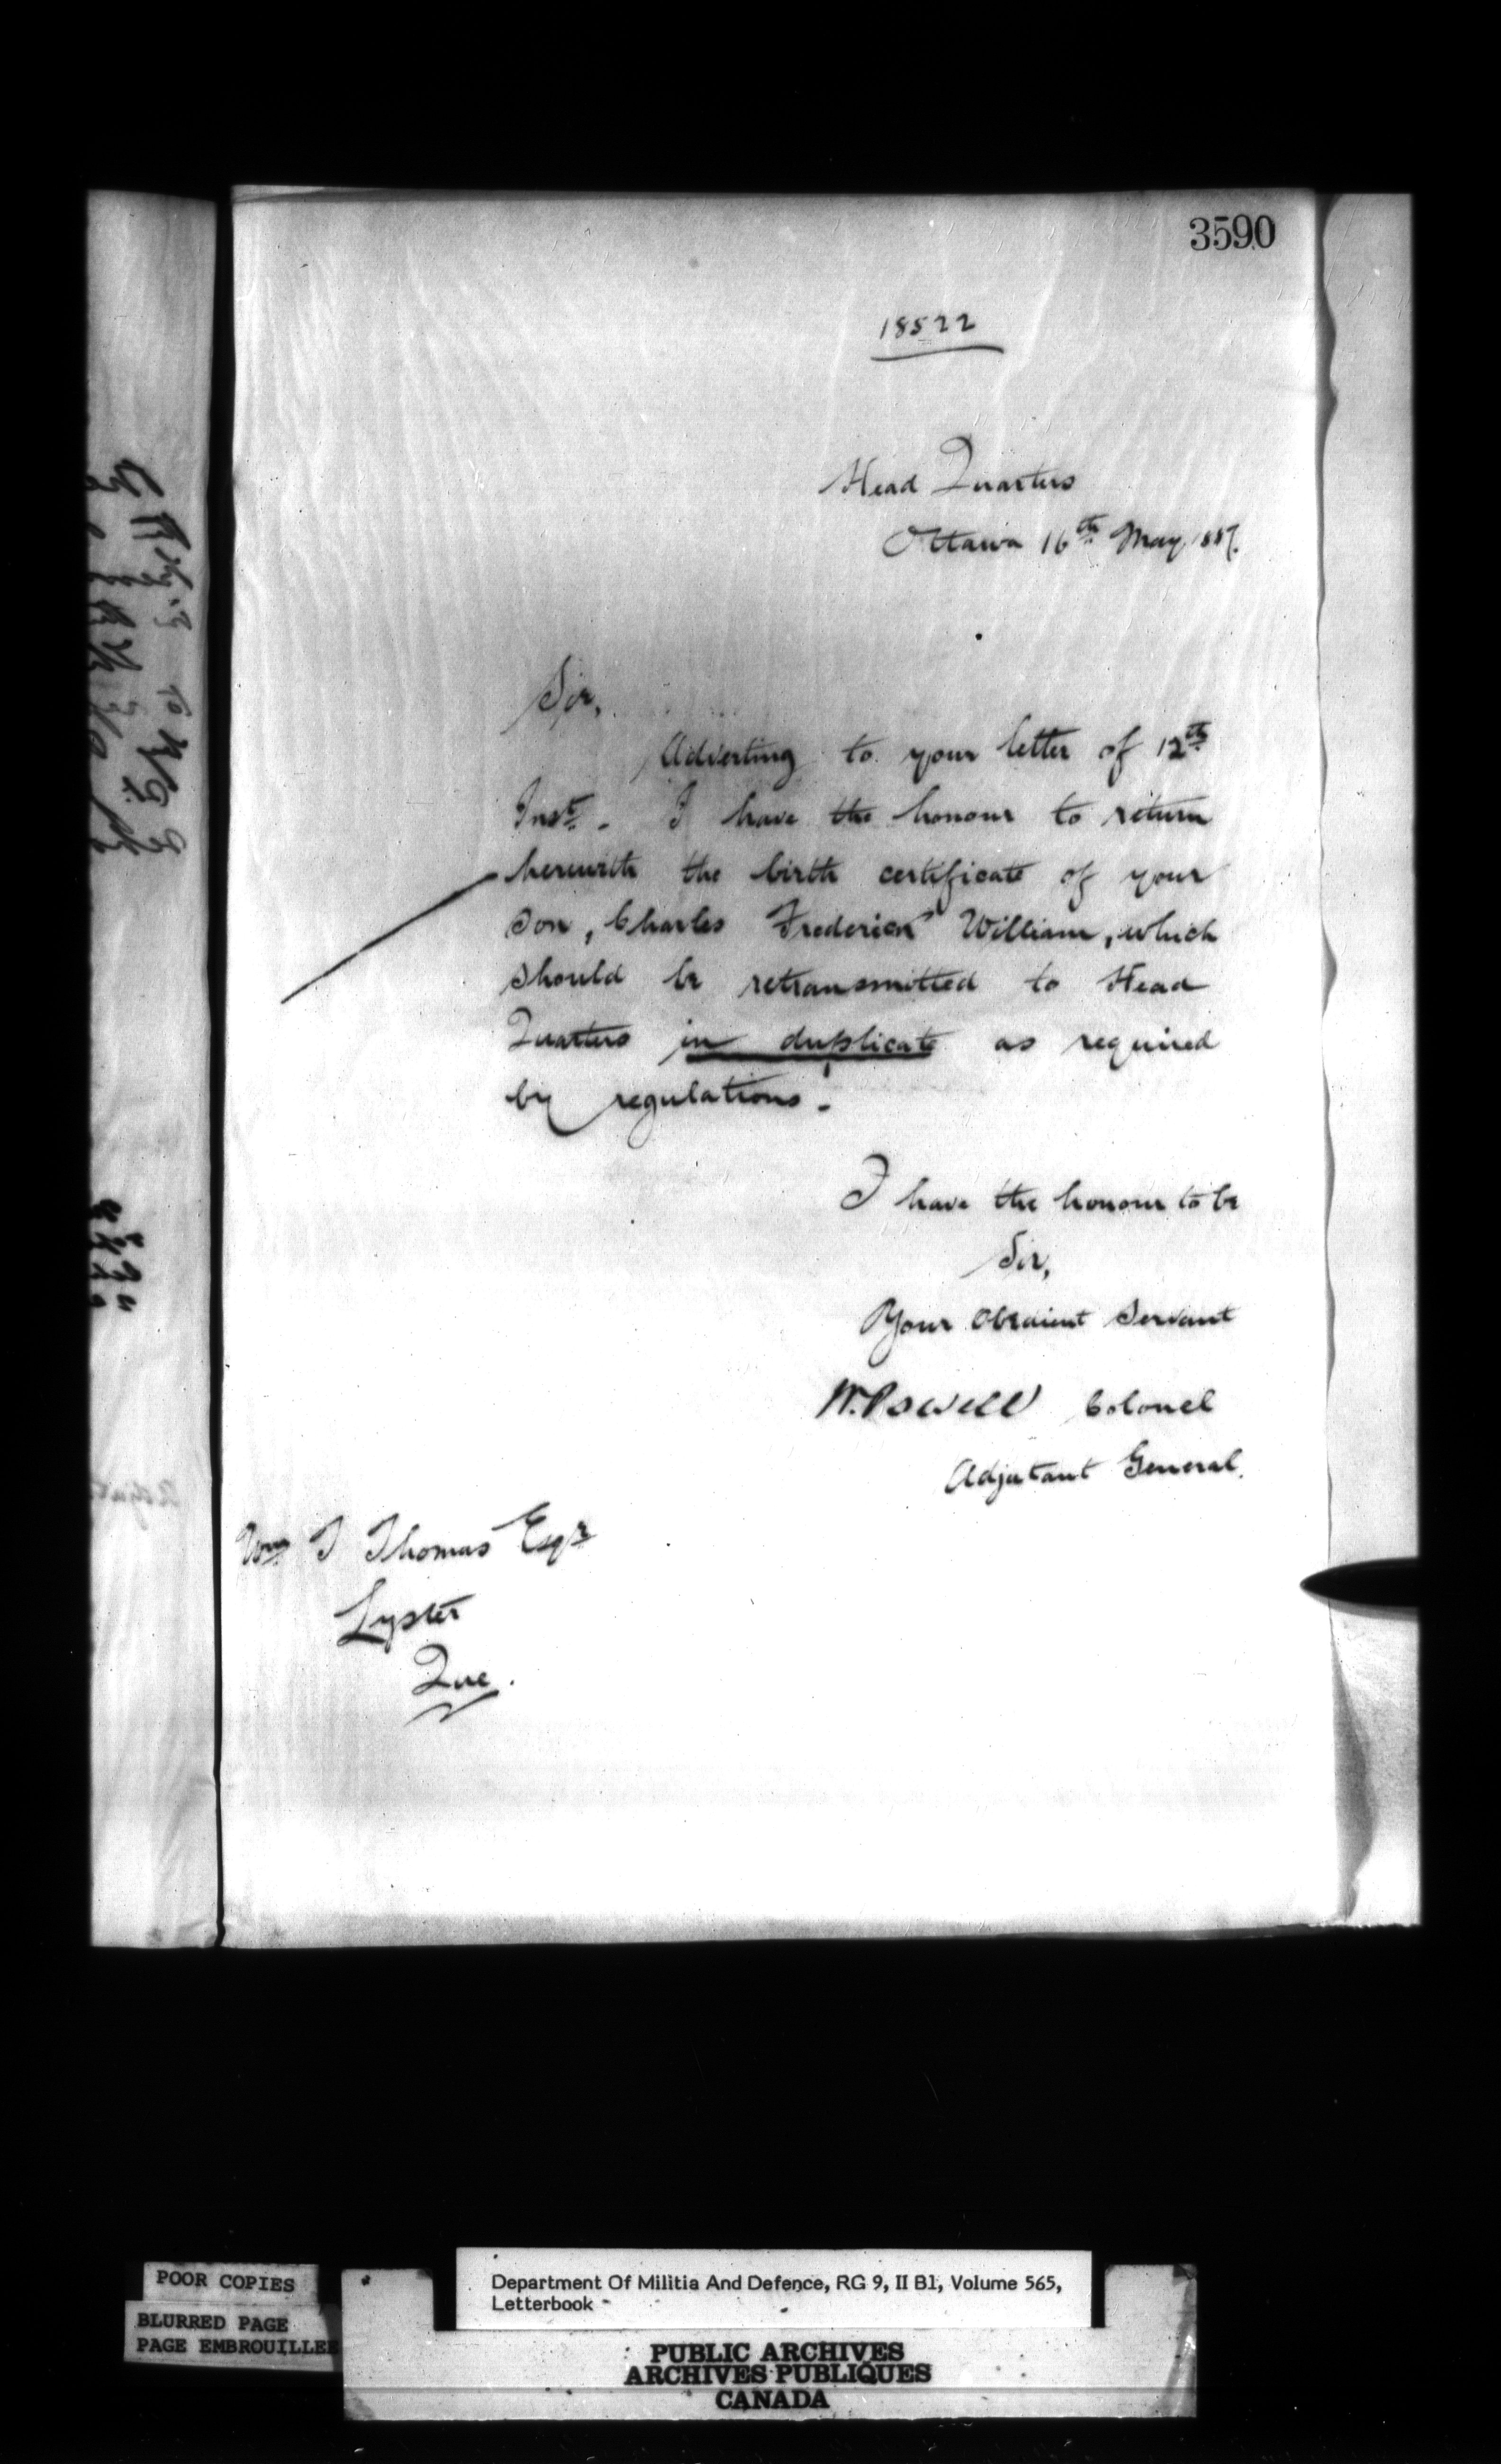 3590
18522
Head Quarters
Ottawa 16th May 1887.
Sir,
Adverting to your letter of 12th
Inst. - I have the honour to return
herewith the birth certificate of your
Son, Charles Frederick William, which
should be retransmitted to Head
Quarters in duplicate as required
by regulations.
I have the honour to be
Sir,
Your Obedient Servant
W. Powell Colonel
Adjutant General.
Wm T Thomas Esqr
Lyster
Que.
POOR COPIES
BLURRED PAGE
PAGE EMBROUILLEE
Department Of Militia And Defence, RG 9, II B1, Volume 565,
Letterbook
PUBLIC ARCHIVES
ARCHIVES PUBLIQUES
CANADA